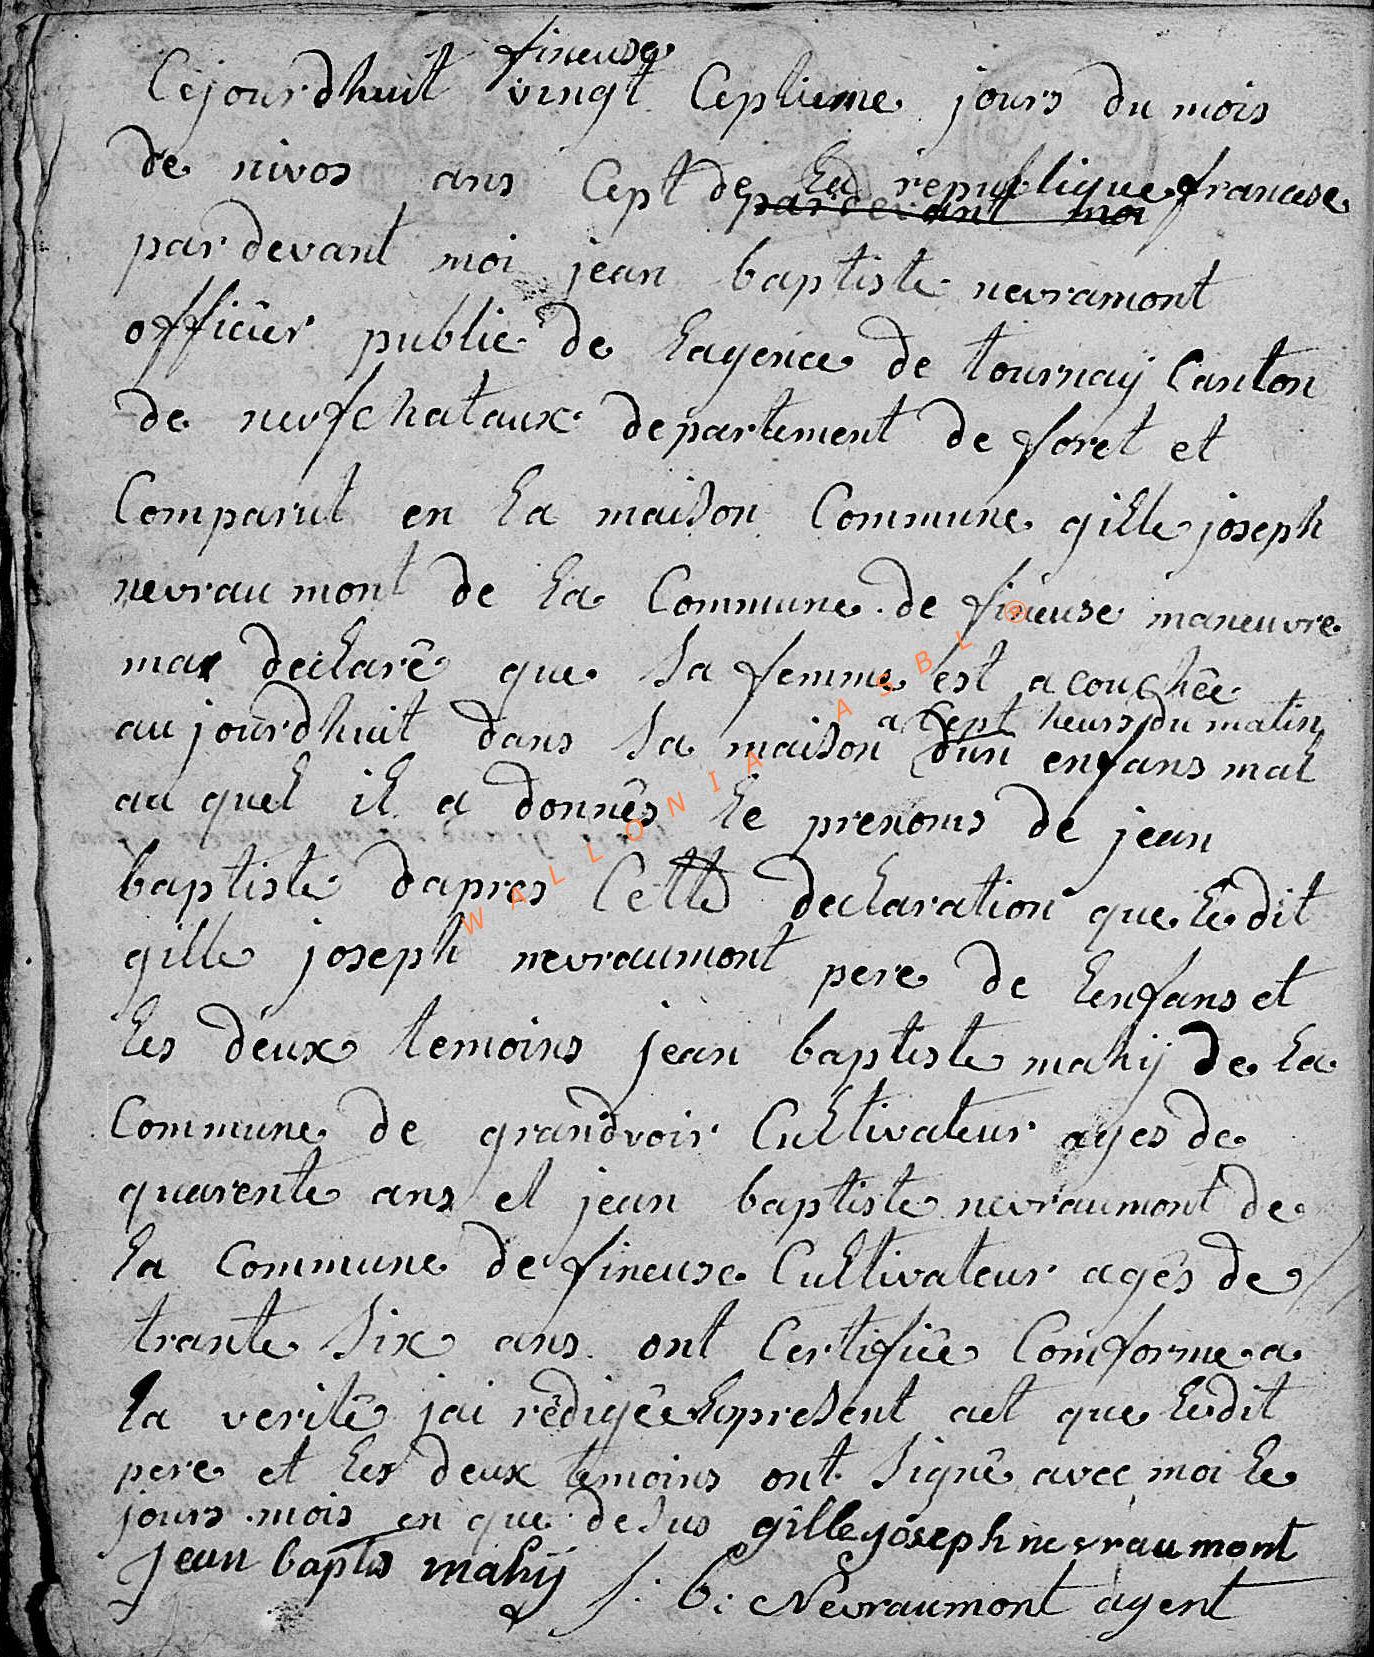 fineuse
Cejourdhuit vingt Ceptieme jours du mois
de nivos ans Cept de La republique francese
pardevant moi
par devant moi jean baptiste nevramont
officier public de Lagence de tournaÿ Canton
de neufchataux departement de foret et
Comparut en La maison Commune gille joseph
nevraumont de La Commune de fineuse maneuvre
ma declarê que Sa femme est acouchêe
a Cept heurs du matin
aujourdhuit dans Sa maison dun enfans mal
au quel il a donnês Le prenoms de jean
baptiste dapres Cette declaration que Ledit
gille joseph nevraumont pere de Lenfans et
Les deux temoins jean baptiste mahij de La
Commune de grandvoir Cultivateur ages de
quarente ans et jean baptiste nevraumont de
La Commune de fineuse Cultivateur agês de
trante Six ans ont Certifiê Comforme a
La veritê jai rêdigêe Lepresent act que Ledit
pere et Les deux temoins ont Signê avec moi Le
jours mois en que desus gille joseph nevraumont
jean bapts mahij
j: b: Nevraumont agent
WALLONIA ASBL ®